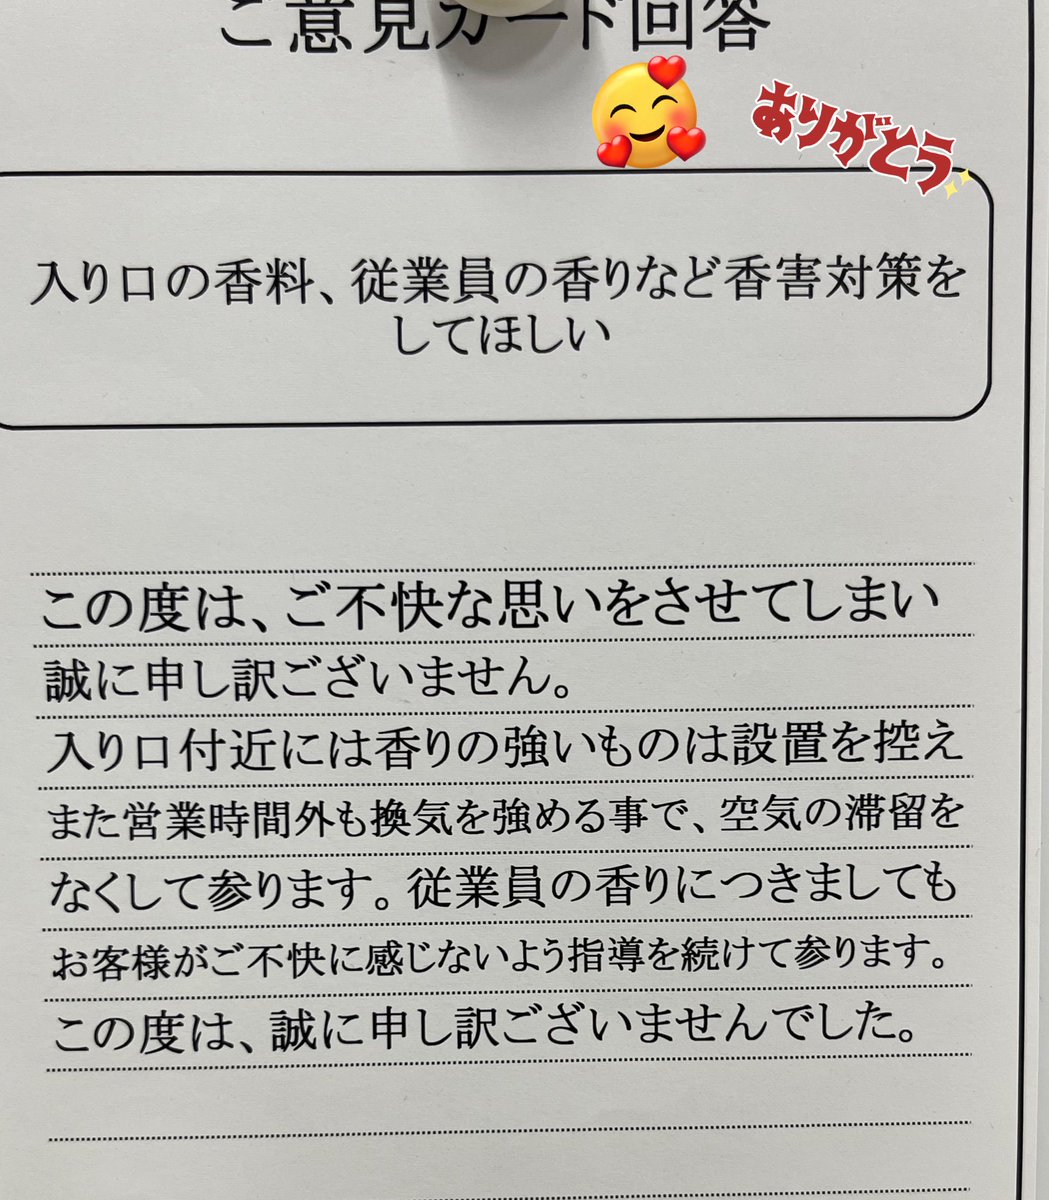 ご意見カード回答
ありがとう
入り口の香料、従業員の香りなど香害対策を
してほしい
この度は、ご不快な思いをさせてしまい
誠に申し訳ございません。
入り口付近には香りの強いものは設置を控え
また営業時間外も換気を強める事で、空気の滞留を
なくして参ります。従業員の香りにつきましても
お客様がご不快に感じないよう指導を続けて参ります。
この度は、誠に申し訳ございませんでした。